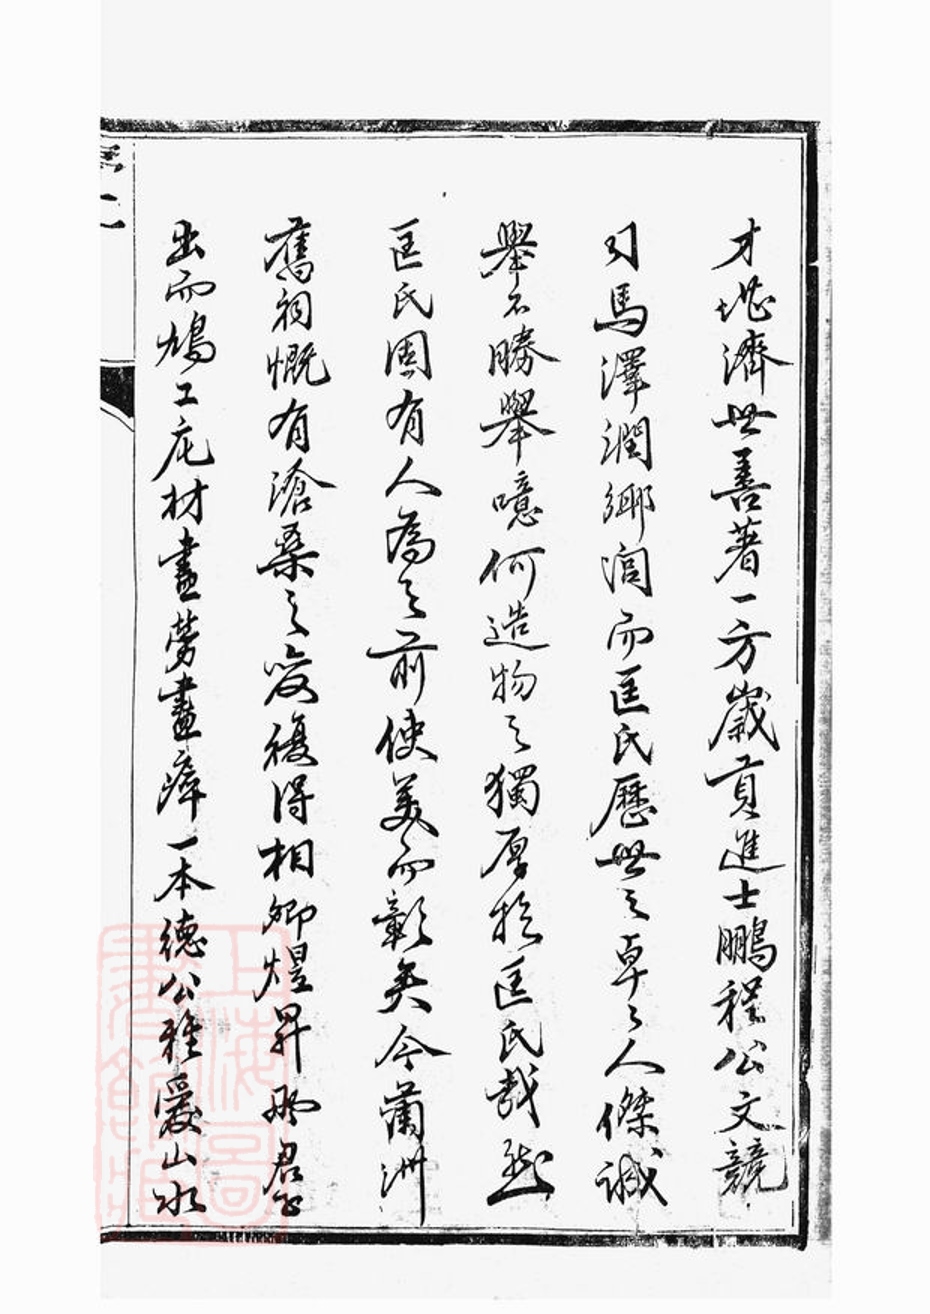 才堪濟世善著一方歲貢進士鵬程公文競
司馬澤潤鄉閭而匡氏歷世之卓之人傑誠
舉不勝舉噫何造物之獨厚於匡氏哉然
匡氏固有人為之前使美而彰矣今蘭洲
舊祠慨有滄桑之變復得相卿煜昇兩君
出而鳩工庀材盡勞盡瘁一本德公雅愛山水